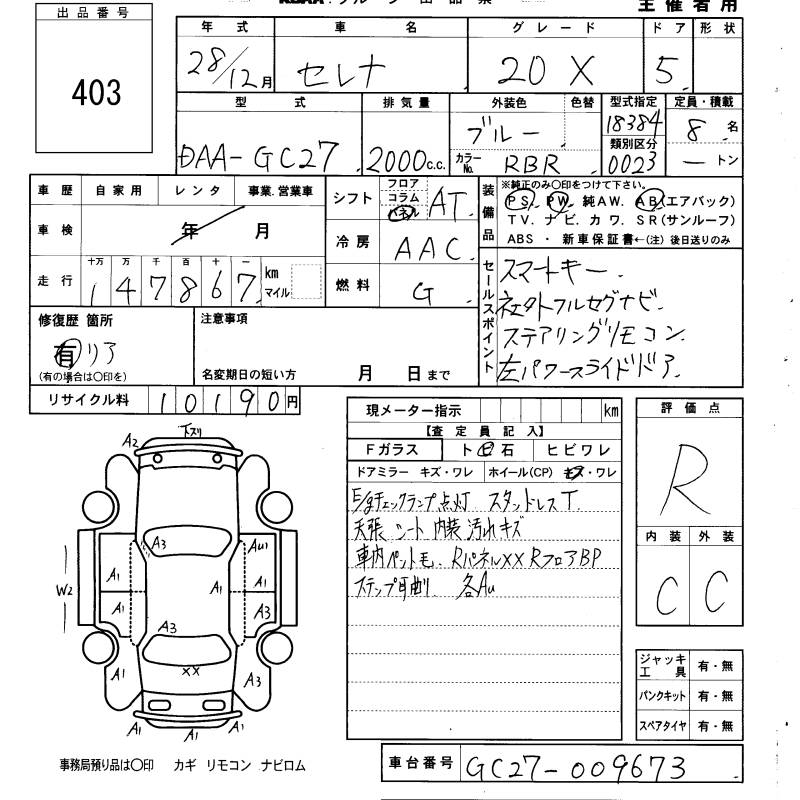 主催者用
出品番号
403
年式 車名 グレード ドア 形状
28/12月 セレナ 20X 5
型式 排気量 外装色 色替 型式指定 定員・積載
DAA-GC27 2000c.c. ブルー 18384 8名
カラーNo. RBR 類別区分 0023 ートン
車歴 自家用 レンタ 事業.営業車
車検 年 月
走行 十万 万 千 百 十 一
147867 km マイル
シフト フロア コラム パネル AT
冷房 AAC
燃料 G
装備品 ※純正のみ〇印をつけて下さい。
PS. PW. 純AW. AB(エアバック)
TV. ナビ. カワ. SR(サンルーフ)
ABS ・ 新車保証書←(注) 後日送りのみ
セールスポイント
スマートキー.
社外フルセグナビ.
ステアリングリモコン.
左パワースライドドア.
修復歴 箇所
有 リア
(有の場合は〇印を)
注意事項
名変期日の短い方 月 日まで
リサイクル料 10190円
現メーター指示 km
【査定員記入】
Fガラス ト 石 ヒビワレ
ドアミラー キズ・ワレ ホイール(CP) キズ・ワレ
E/gチェックランプ点灯 スタッドレスT.
天張 シート 内装 汚れキズ
車内ペット毛. Rパネル×× RフロアBP
各Au
評価点
R
内装 外装
C C
ジャッキ工具 有・無
パンクキット 有・無
スペアタイヤ 有・無
下スリ
A2
A3 Au1
W2 A1 A1
A1 A1 A3
A3
××
A1 A3
A1 A1 A1
事務局預り品は〇印 カギ リモコン ナビロム
車台番号 GC27-009673